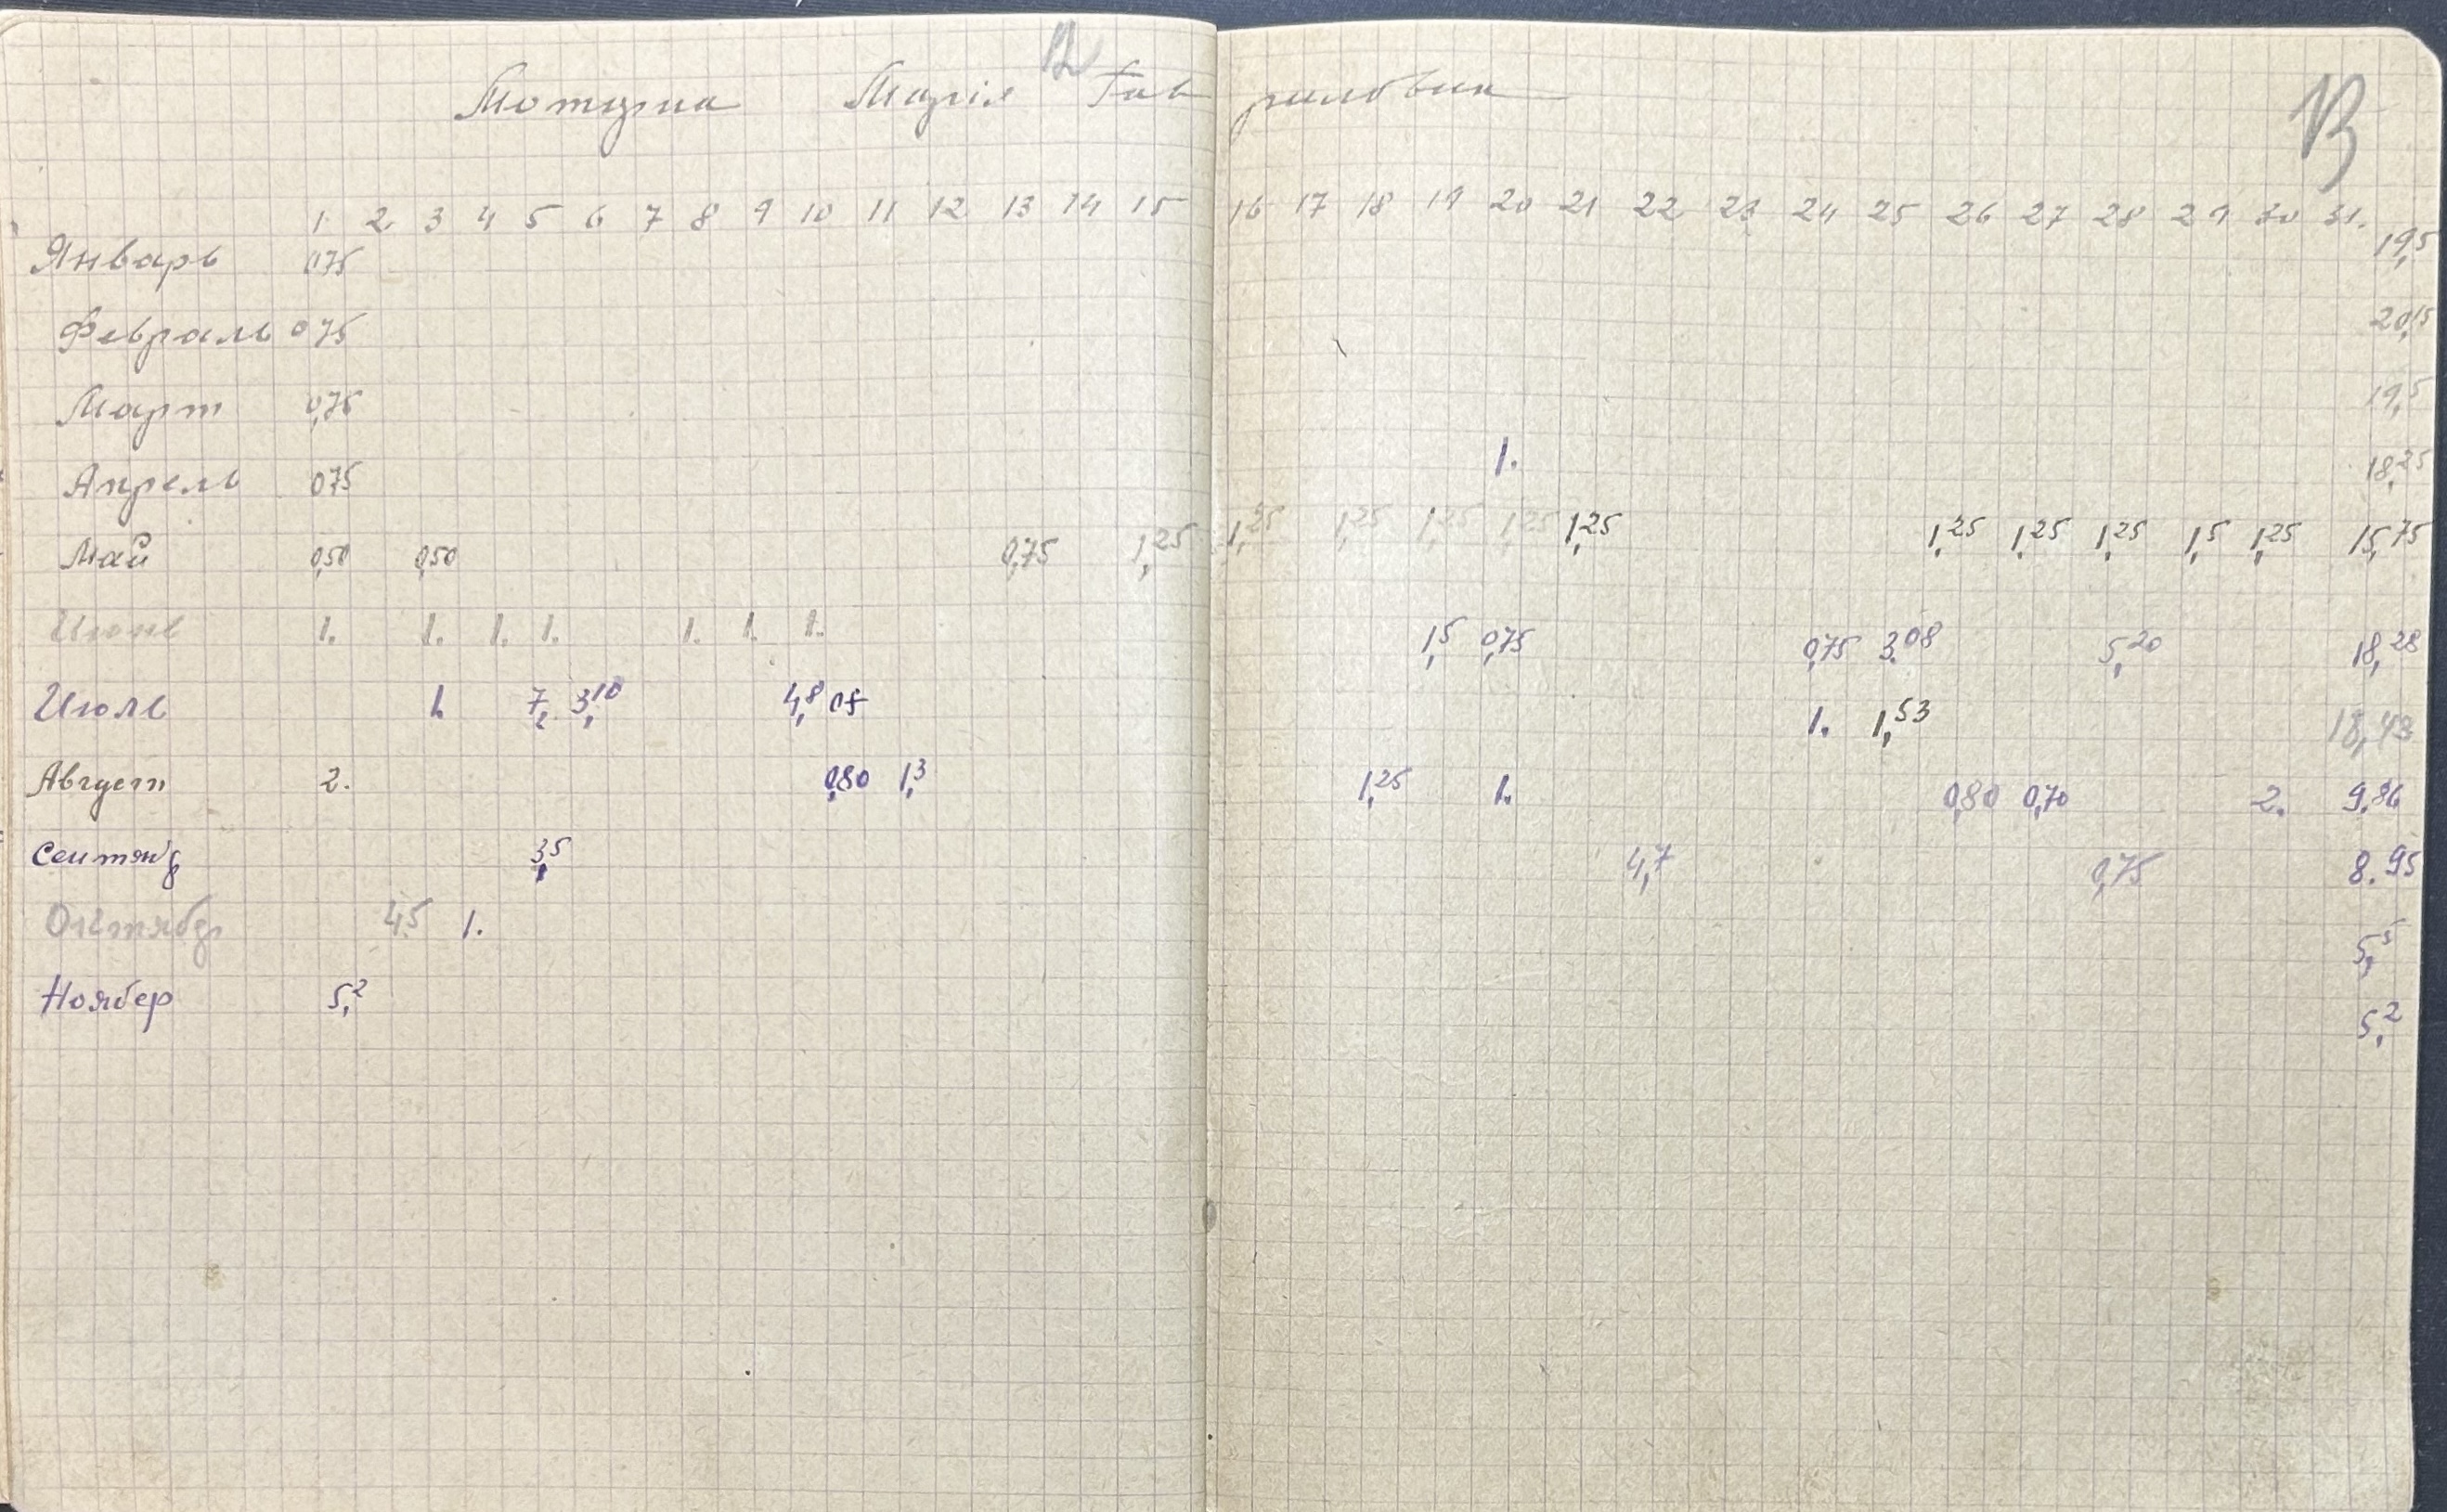 12
Мотузна Марія Гав риловна
13
1 2 3 4 5 6 7 8 9 10 11 12 13 14 15 16 17 18 19 20 21 22 23 24 25 26 27 28 29 30 31.
Январь 0,75 19,5
Февраль 0,75 20,15
Март 0,75 19,5
Апрель 0,75 1. 18,25
Май 0,50 0,50 0,75 1,25 1,25 1,25 1,25 1,25 1,25 1,25 1,25 1,25 1,5 1,25 15,75
Июнь 1. 1. 1. 1. 1. 1. 1. 1,5 0,75 0,75 3,08 5,20 18,28
Июль 1. 7,2 3,10 4,8 1. 1,53 18,43
Август 2. 0,80 1,3 1,25 1. 0,80 0,70 2. 9,86
Сентяб 3,5 4,7 0,75 8.95
Октябр 4,5 1. 5,5
Ноябер 5,2 5,2